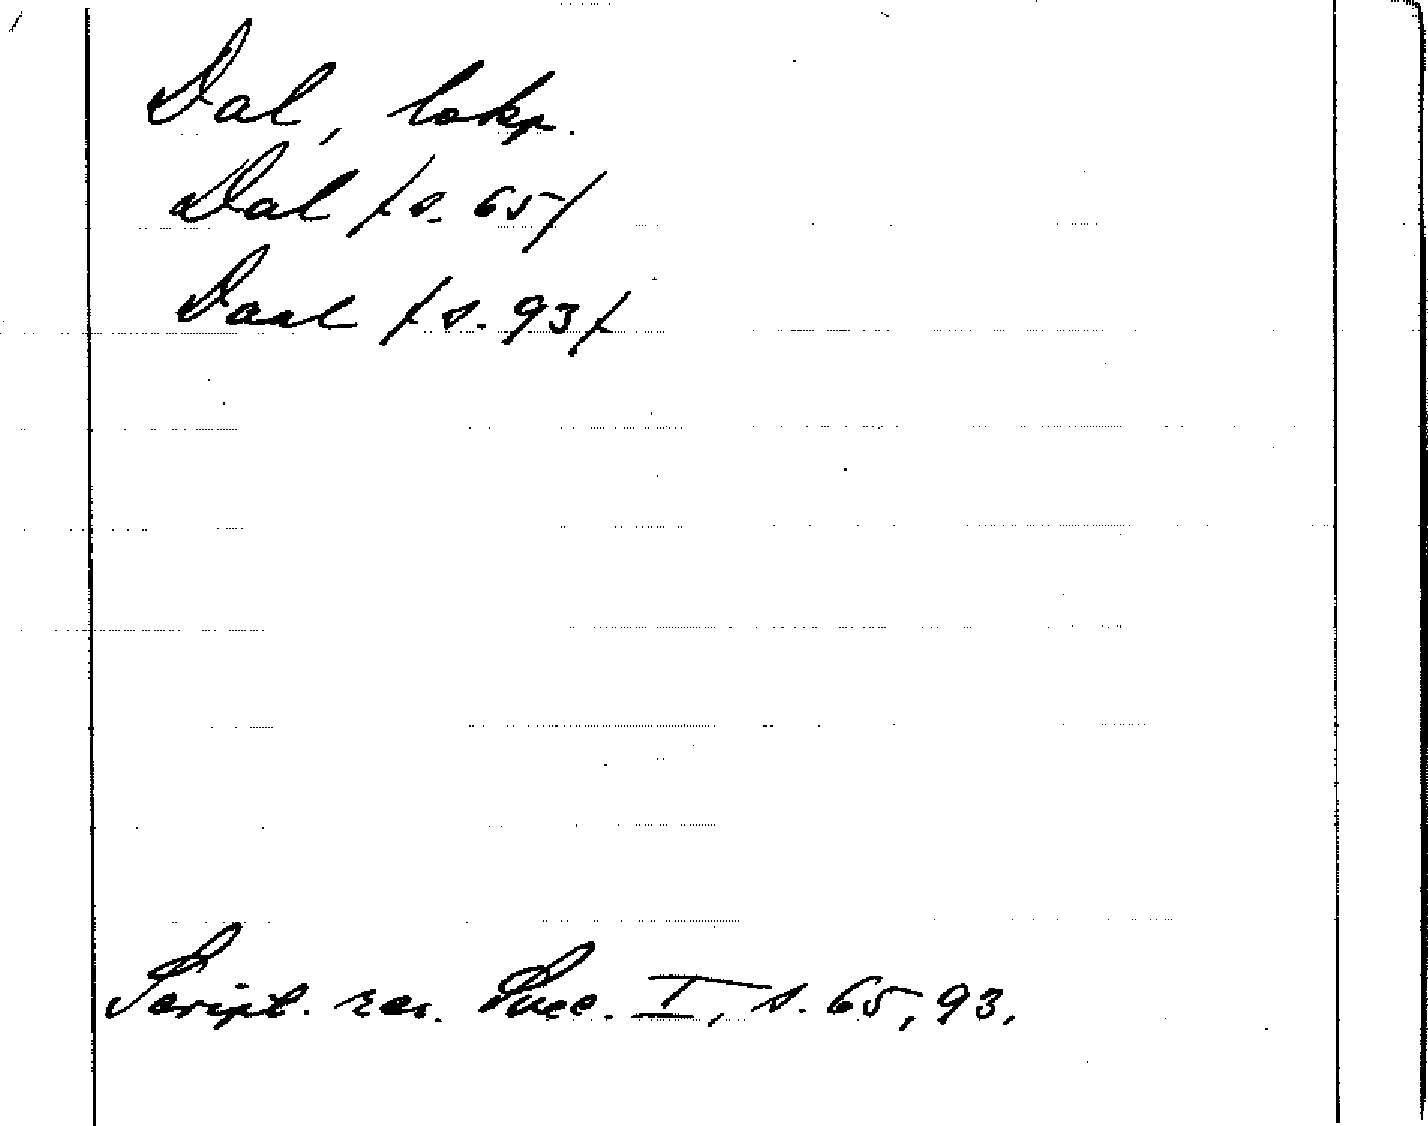 Dal, lokp.
Dal /s. 65/
Daal /s. 93/
Script. rer. Suec. I, s. 65, 93.